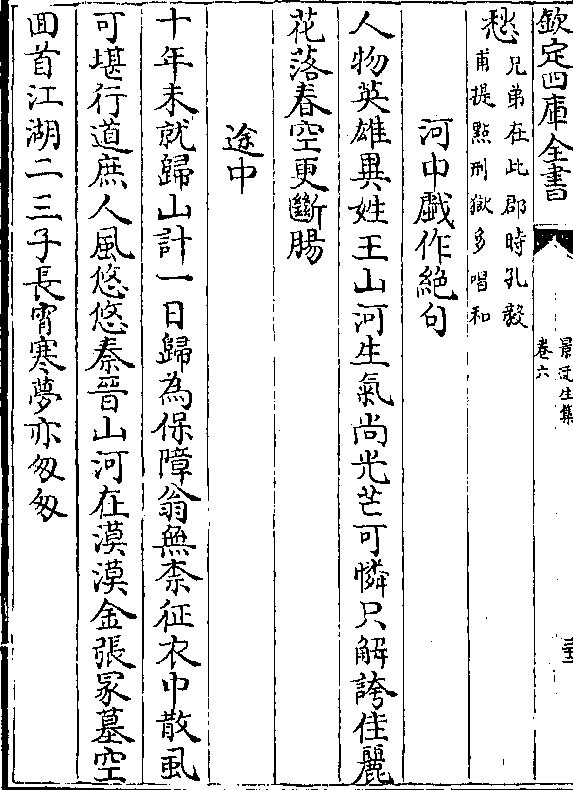 欽定四庫全書
景迂生集
卷六
愁
兄弟在此郡時孔毅
甫提點刑獄多唱和
河中戲作絕句
人物英雄異姓王山河生氣尚光芒可憐只解誇佳麗
花落春空更斷腸
途中
十年未就歸山計一日歸為保障翁無柰征衣巾散虱
可堪行道庶人風悠悠秦晉山河在漠漠金張冢墓空
回首江湖二三子長宵寒夢亦匆匆